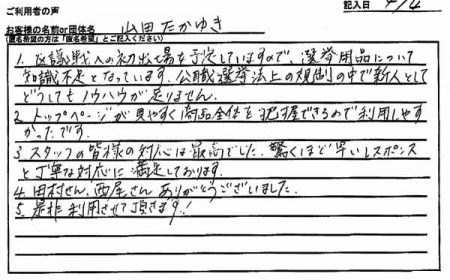 ご利用者の声
記入日 4/4
お客様の名前or団体名 山田たかゆき
(匿名希望の方は「匿名希望」とご記入ください)
1. 区議戦への初出場を予定していますので、選挙用品について
知識不足となっています。公職選挙法上の規制の中で新人として
どうしてもノウハウが足りません。
2. トップページが見やすく商品全体を把握できるので利用しやす
かったです。
3. スタッフの皆様の対応は最高でした。驚くほど早いレスポンス
と丁寧な対応に満足しております。
4. 田村さん、西尾さん ありがとうございました。
5. 是非利用させて頂きます!